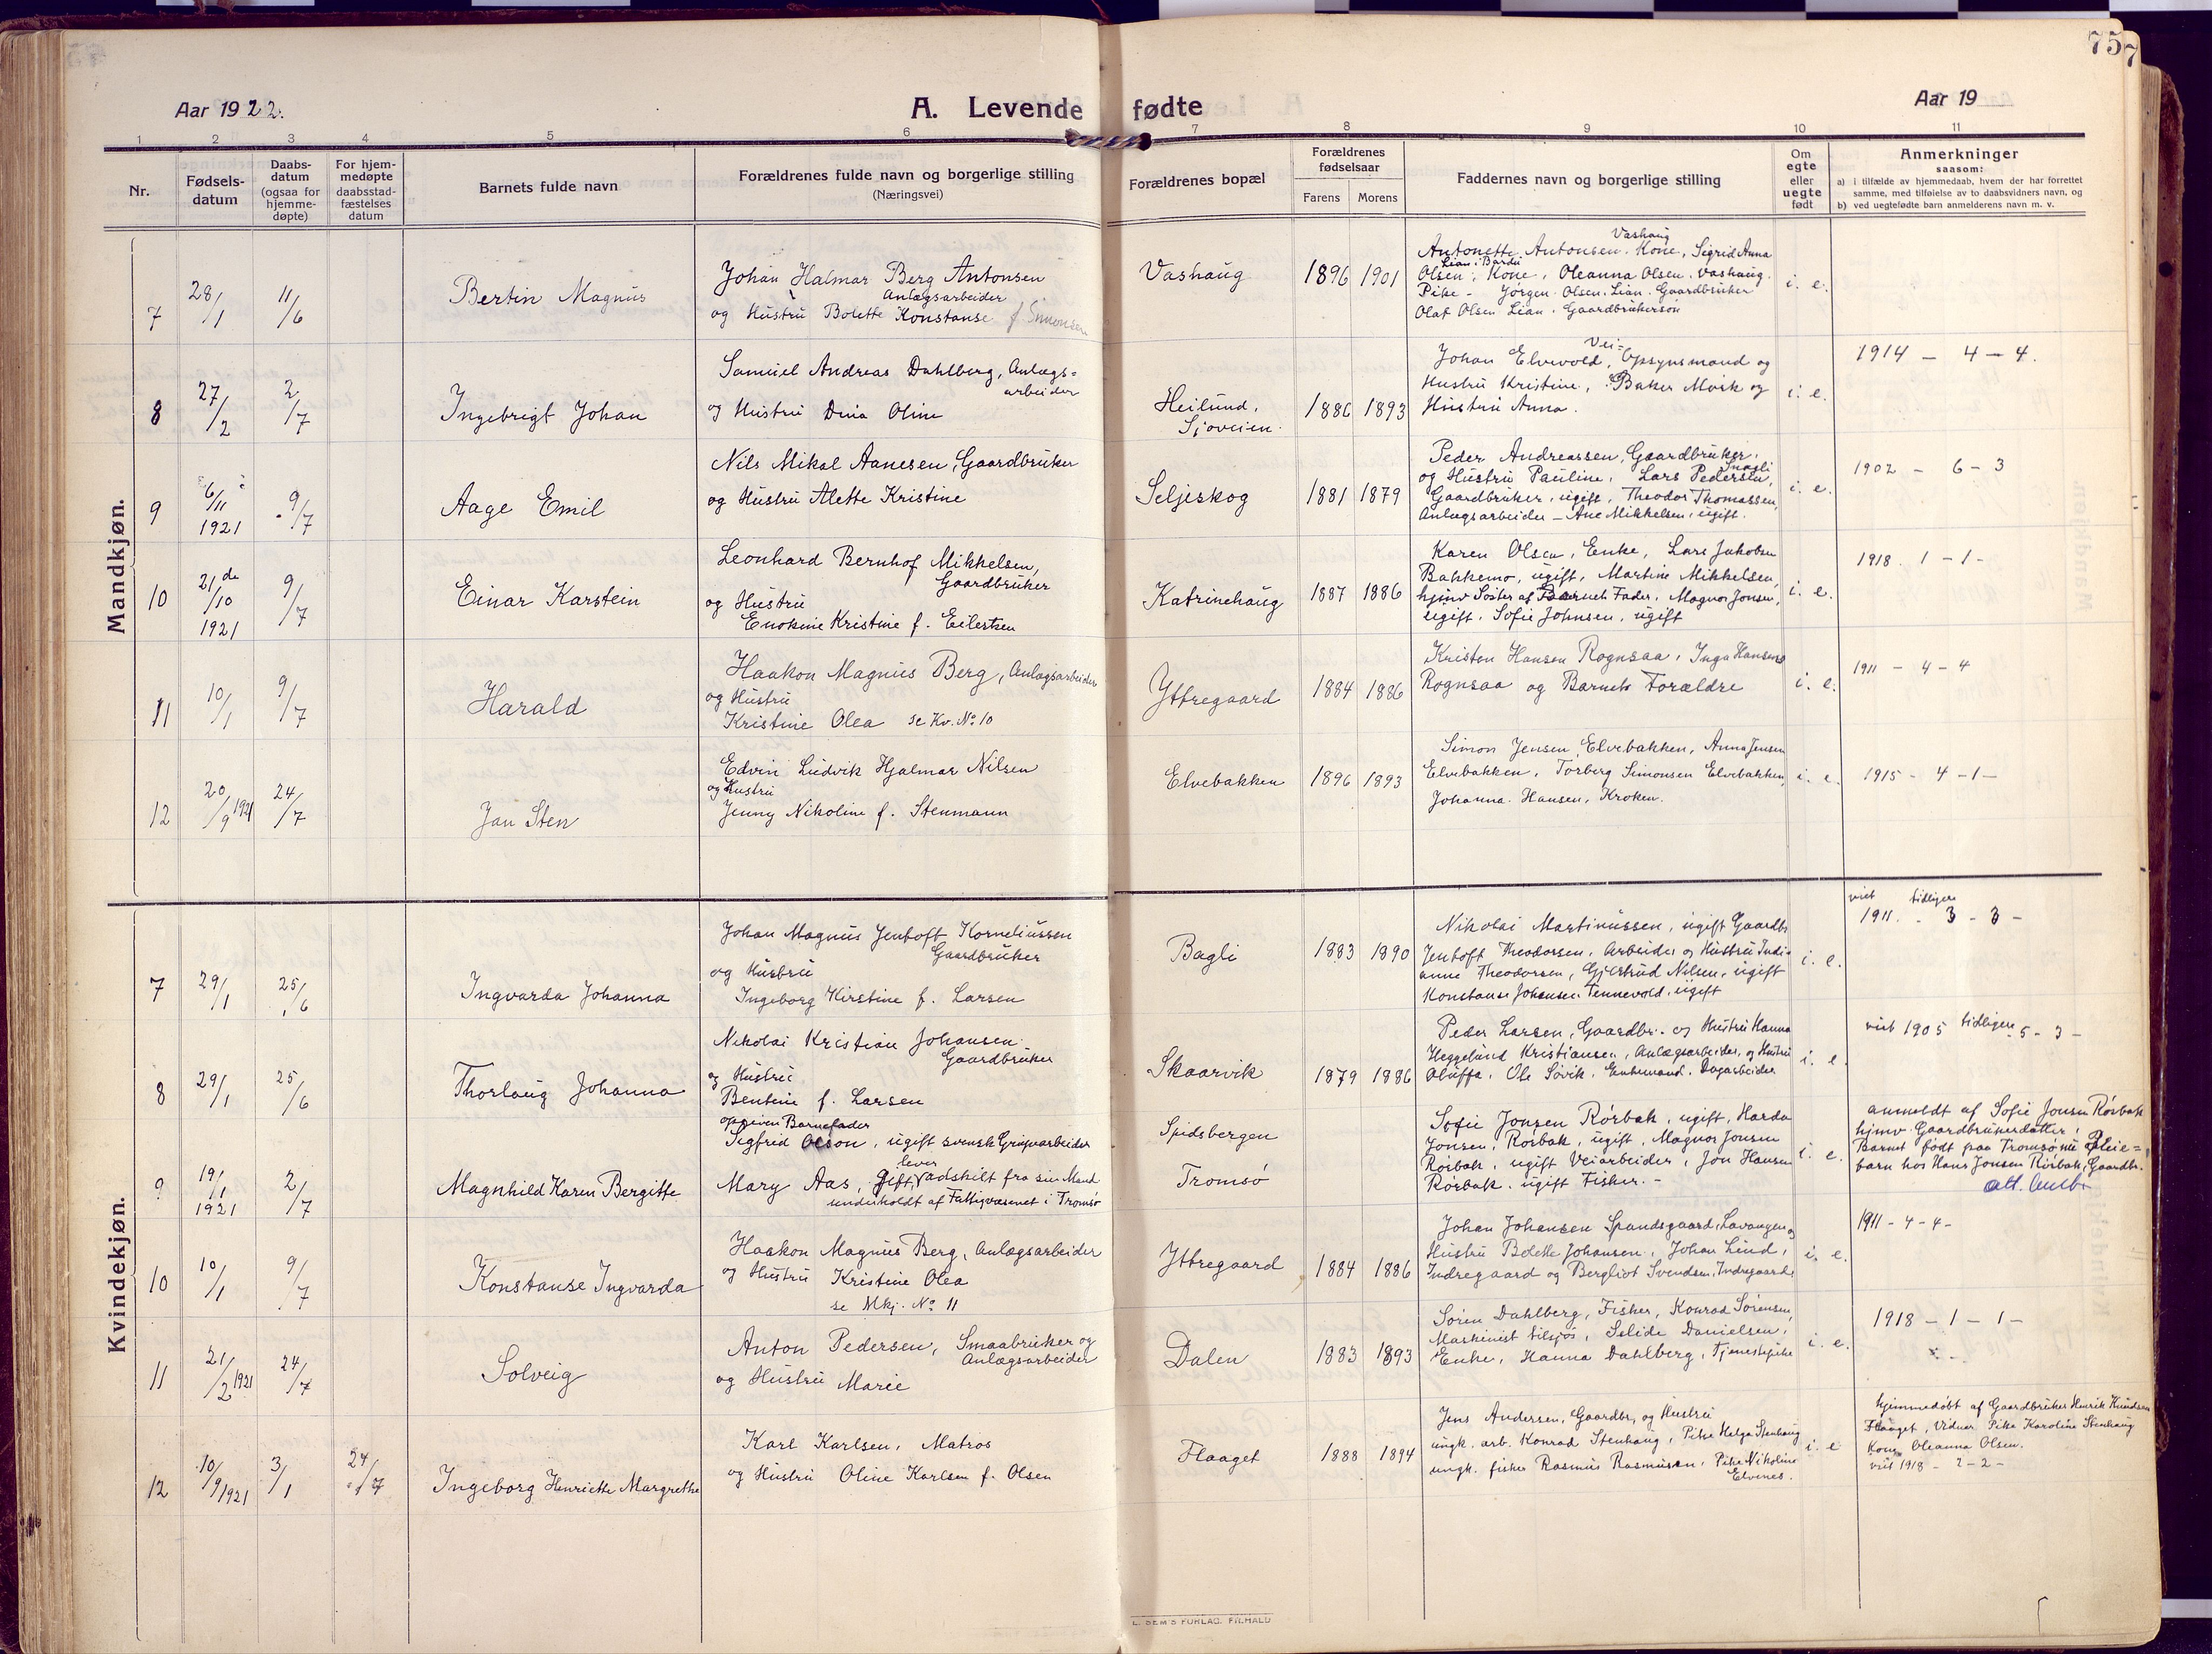 757
Aar 1922.
A. Levende fødte
Aar 19
1 2 3 4 5 6 7 8 9 10 11
Nr.
Fødsels-
datum
Daabs-
datum
(ogsaa for
hjemme-
døpte)
For hjem-
medøpte
daabsstad-
fæstelses
datum
Barnets fulde navn
Forældrenes fulde navn og borgerlige stilling
(Næringsvei)
Forældrenes bopæl
Forældrenes
fødselsaar
Farens Morens
Faddernes navn og borgerlige stilling
Om
egte
eller
uegte
født
Anmerkninger
saasom:
a) i tilfælde av hjemmedaab, hvem der har forrettet
samme, med tilføielse av to daabsvidners navn, og
b) ved uegtefødte barn anmelderens navn m. v.
Mandkjøn.
7 28/1 11/6 Bertin Magnus
Johan Halmar Berg Antonsen
Anlægsarbeider
og Hustru Bolette Konstanse f. Simonsen
Vashaug 1896 1901
Vashaug
Antonette Antonsen. Kone, Sigrid Anna
Lian i Bardu
Olsen, Kone, Oleanna Olsen. Vashaug.
Pike - Jörgen Olsen. Lian. Gaardbruker
Olaf Olsen Lian. Gaardbrukersön
i. e.
8 27/2 2/7 Ingebrigt Johan
Samuel Andreas Dahlberg, Anlægs=
arbeider
og Hustru Dina Oline
Heilund,
Sjoveien.
1886 1893
Vei=
Johan Elvevold, Opsynsmand og
Hustru Kristine, Baker Mörk og
Hustru Anna.
i. e.
1914 - 4 - 4.
9 6/11 1921 9/7 Aage Emil
Nils Mikal Aanesen, Gaardbruker
og Hustru Alette Kristine
Seljeskog 1881 1879
Peder Andreassen, Gaardbruker,
og Hustru Pauline, Lars Pedersen,
Gaardbruker, ugift, Theodor Thomassen,
Anlægsarbeider - Ane Mikkelsen, ugift.
i. e.
1902 - 6 - 3
10 21de/10 1921 9/7 Einar Karstein
Leonhard Bernhof Mikkelsen,
Gaardbruker
og Hustru
Enokine Kristine f. Eilertsen
Katrinehaug 1887 1886
Karen Olsen, Enke, Lars Jakobsen
Bakkemo, ugift, Martine Mikkelsen,
hjmv Söster af Barnets Fader, Magnor Jonsen,
ugift. Sofie Johnsen, ugift
i. e.
1918. 1 - 1 -
11 10/1 9/7 Harald
Haakon Magnus Berg, Anlægsarbeider
og Hustru
Kristine Olea se Kv. No 10
Yttregaard 1884 1886
Kristen Hansen Rognsaa, Inga Hansens
Rognsaa og Barnets Forældre
i. e.
1911 - 4 - 4
12 20/9 1921 24/7 Jan Sten
Edvin Ludvik Hjalmar Nilsen
og Hustru
Jenny Nikoline f. Stenmann
Elvebakken 1896 1893
Simon Jensen Elvebakken, Anna Jensen
Elvebakken, Torberg Simonsen Elvebakken,
Johanna Hansen, Kroken.
i. e.
1915 - 4 - 1 -
Kvindekjøn.
7 29/1 25/6 Ingvarda Johanna
Johan Magnus Jentoft Korneliussen
Gaardbruker
og Hustru
Ingeborg Kirstine f. Larsen
Bagli 1883 1890
Nikolai Martinussen, ugift Gaardbr
Jentoft Theodorsen, Arbeider og Hustru Indi-
anne Theodorsen, Gjertrud Nilsen, ugift
Konstanse Johansen Tennevold, ugift
i. e.
viet tidligere
1911. - 3 - 3 -
8 29/1 25/6 Thorlaug Johanna
Nikolai Kristian Johansen
Gaardbruker
og Hustru
Bentine f. Larsen
Skaarvik 1879 1886
Peder Larsen, Gaardbr. og Hustru Hanna
Heggelund Kristiansen, Anlægsarbeider, og Hustru
Oluffa. Ole Sövik, Enkemand. Dagarbeider
i. e.
viet 1905 tidligere 5 - 3 -
9 19/1 1921 2/7 Magnhild Karen Bergitte
opgiven Barnefader
Sigfrid Olson, ugift svensk Gruvearbeider
Mary Aas, gift, lever adskilt fra sin Mand
underholdt af Fattigvæsenet i Tromsö
Spidsbergen
Tromsö
Sofie Jonsen Rörbak, ugift, Harda
Jonsen, Rörbak, ugift, Magnor Jonsen
Rörbak, ugift Veiarbeider, Jon Hansen
Rörbak. ugift Fisker. -
i. e.
anmeldt af Sofie Jonsen Rörbak
hjmv. Gaardbrukerdatter,
Barnet födt paa Tromsö nu Pleie=
barn hos Hans Jonsen Rörbak, Gaardbr.
10 10/1 9/7 Konstanse Ingvarda
Haakon Magnus Berg, Anlægsarbeider
og Hustru Kristine Olea
se Mkj. No 11
Yttregaard 1884 1886
Johan Johansen Spandsgaard, Lavangen og
Hustru Bolette Johansen, Johan Lind,
Indregaard og Bergliot Svendsen, Indregaard
i. e.
1911 - 4 - 4 -
11 21/2 1921 24/7 Solveig
Anton Pedersen, Smaabruker og
Anlægsarbeider
og Hustru Marie
Dalen 1883 1893
Sören Dahlberg, Fisker, Konrad Sörensen,
Maskinist tilsjös, Selide Danielsen,
Enke, Hanna Dahlberg, Tjenestepike
i. e.
1918 - 1 - 1 -
12 10/9 1921 3/1 24/7 Ingeborg Henriette Margrethe
Karl Karlsen, Matros
og Hustru Oline Karlsen f. Olsen
Flaaget 1888 1894
Jens Andersen, Gaardbr, og Hustru
ungk. arb. Konrad Stenhaug, Pike Helga Stenhaug
ungk. fisker Rasmus Rasmussen, Pike Nikoline
Elvenes.
i. e
hjemmedöbt af Gaardbruker Henrik Knudsen
Flaaget, Vidner Pike Karoline Stenhaug
Kone Oleanna Olsen.
viet 1918 - 2 - 2 -
E. SEM'S FORLAG. F.HALD